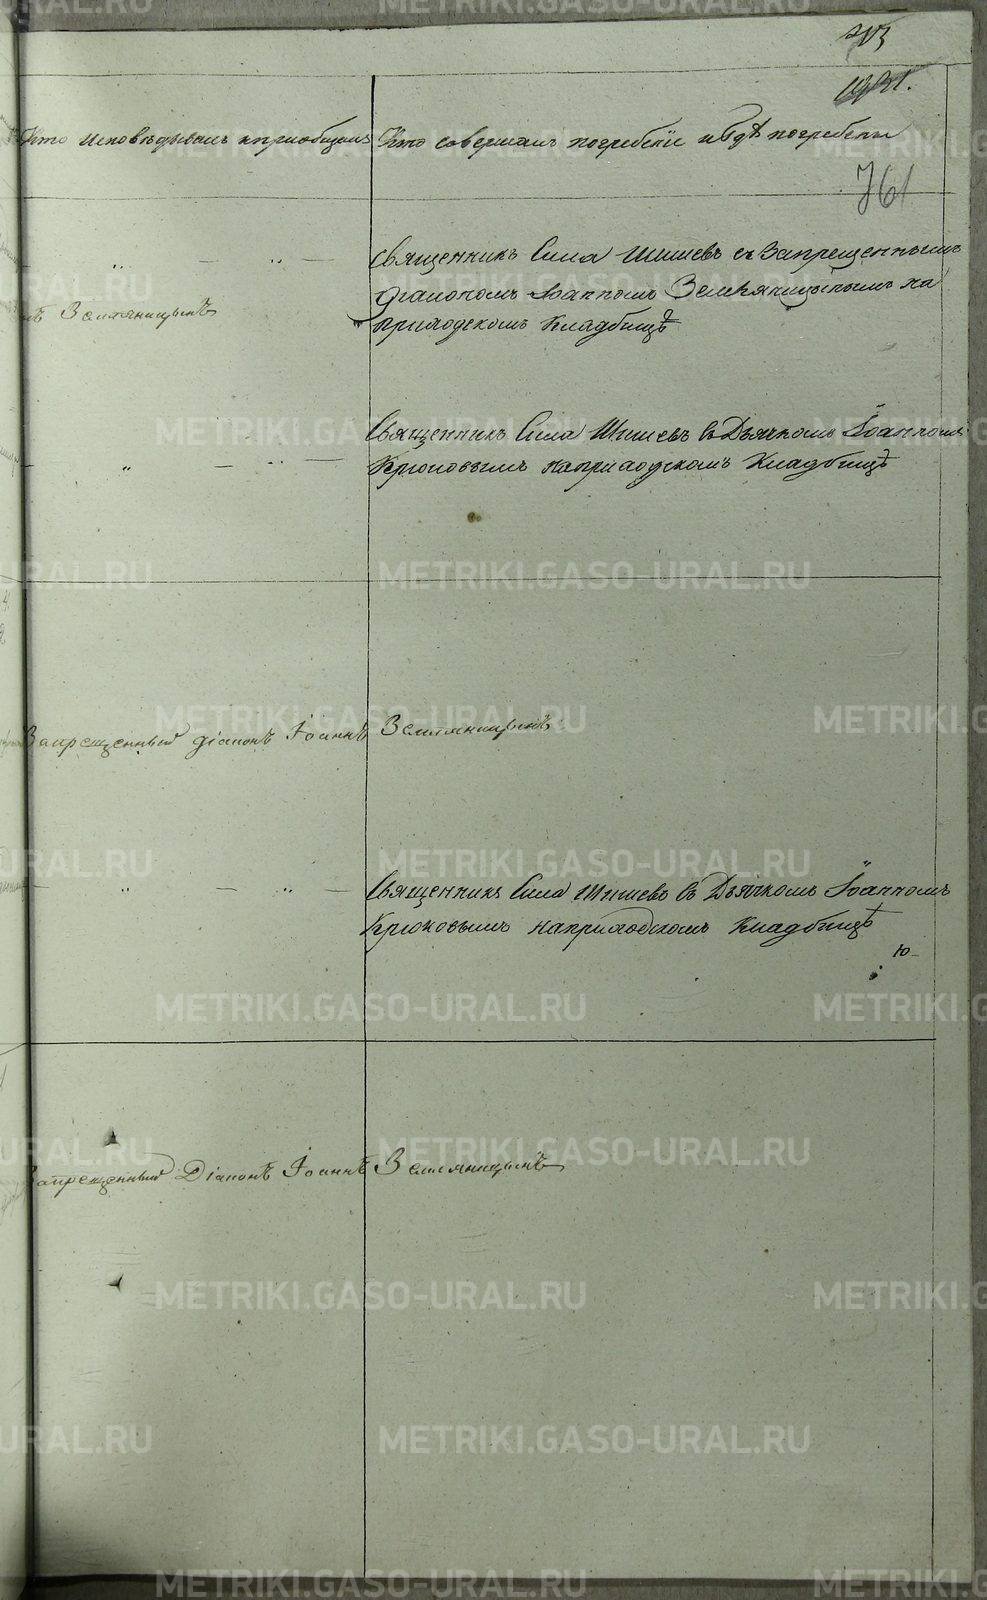 761
Кто исповѣдывалъ и приобщалъ
Кто совершалъ погребенiе и гдѣ погребены
Священникъ Сила Шишевъ съ запрещеннымъ
дiакономъ Iоанномъ Земляницынымъ на
приходскомъ кладбищѣ
Земляницынъ
Священникъ Сила Шишевъ съ Дьячкомъ Iоанномъ
Крюковымъ на приходскомъ Кладбищѣ
Запрещенный дiаконъ Iоаннъ Земляницынъ
Священникъ Сила Шишевъ съ Дьячкомъ Iоанномъ
Крюковымъ на приходскомъ Кладбищѣ
ю
Запрещенный Дiаконъ Iоаннъ Земляницынъ
METRIKI.GASO-URAL.RU